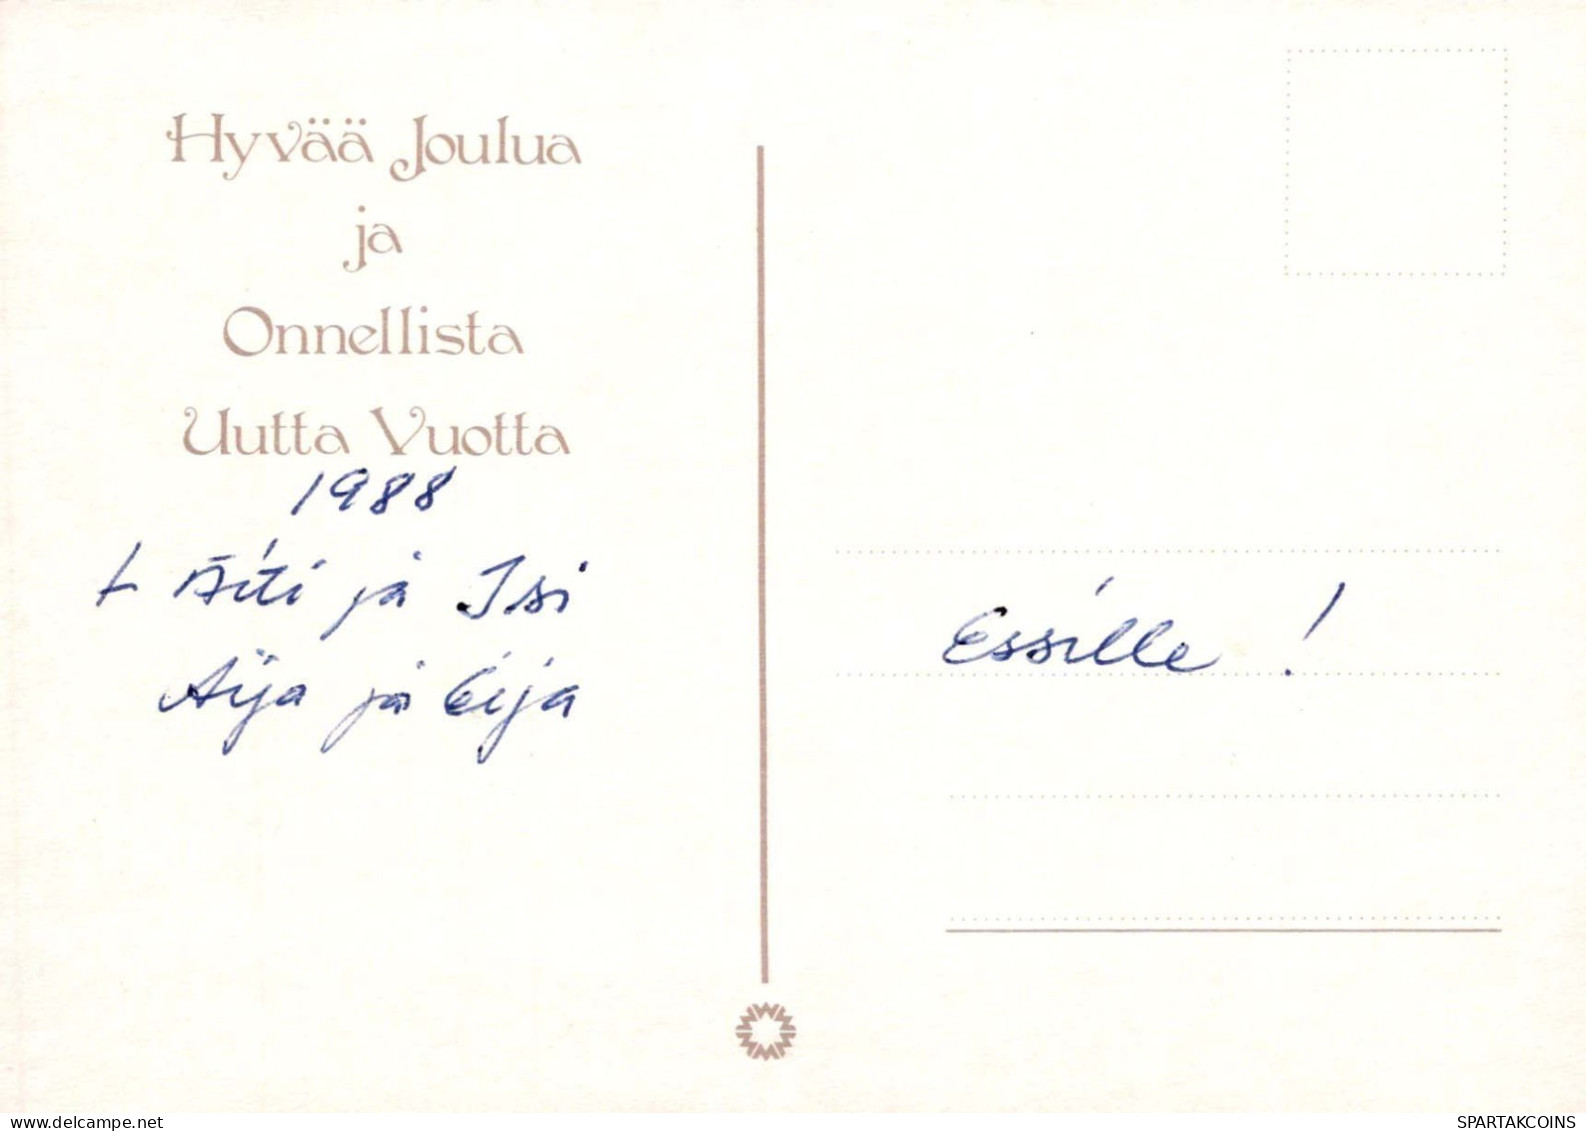 Hyvää Joulua
ja
Onnellista
Uutta Vuotta
1988
t Äiti ja Isi
Aija ja Eija
Essille !
SPARTAKCOINS
www.delcampe.net